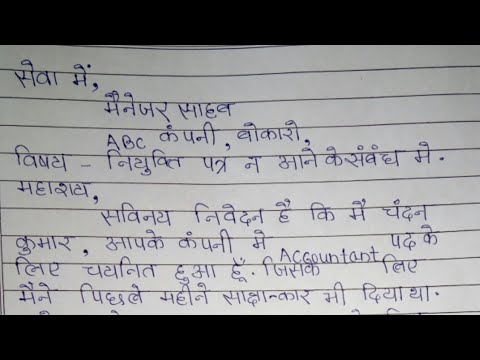 सेवा में,
मैनेजर साहब
ABC कंपनी, बोकारो,
विषय - नियुक्ति पत्र न आने के संबंध मे.
महाशय,
सविनय निवेदन है कि मै चंदन
कुमार, आपके कंपनी मे Accountant पद के
लिए चयनित हुआ हूँ. जिसके लिए
मैने पिछले महीने साक्षात्कार भी दिया था.